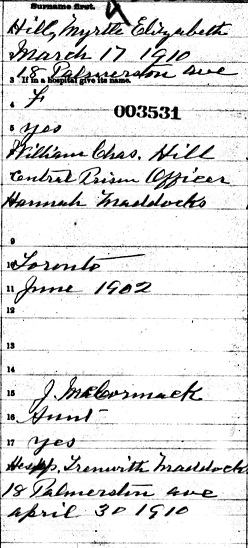 Surname first.
Hill, Myrtle Elizabeth
March 17 1910
18 Palmerston ave
3 If in a hospital give its name.
4 F
003531
5 yes
William Chas. Hill
Central Prison Officer
Hannah Maddocks
9
10 Toronto
11 June 1902
12
13
14
15 J. McCormack
16 Aunt
17 yes
Trenwith Maddock
18 Palmerston ave
april 30 1910